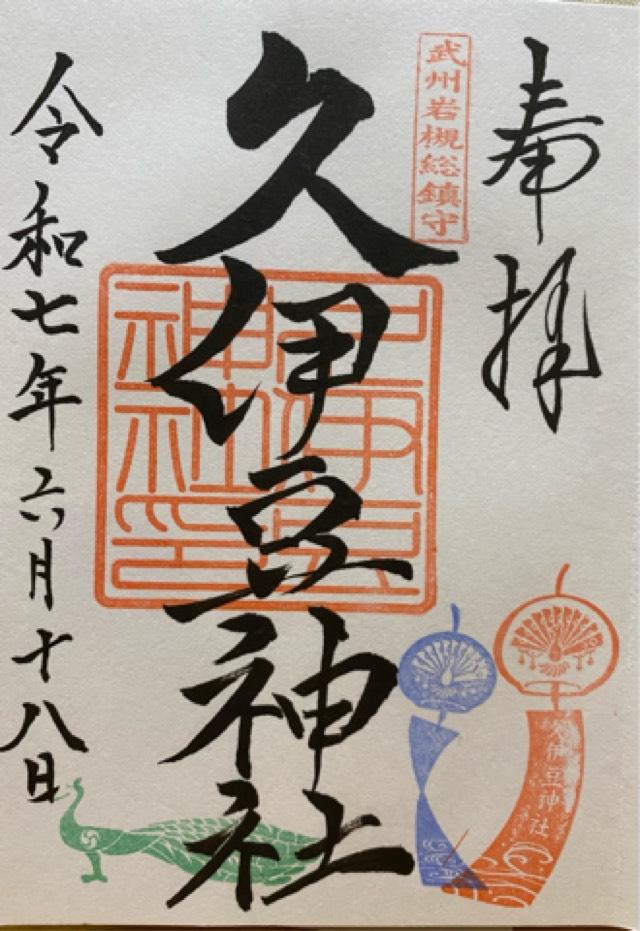 奉拝
武州岩槻総鎮守
久伊豆神社
久伊豆神社
令和七年六月十八日